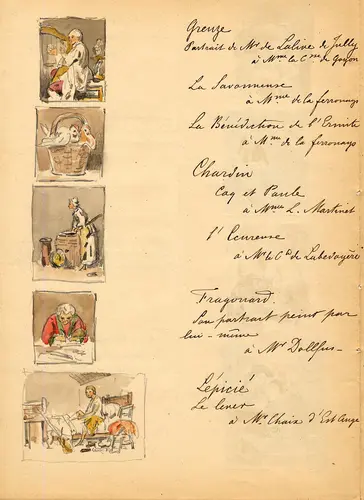 Greuze
Portrait de Mr de Laline de Jully
à Mme la Csse de Goyon
La Savonneuse
à Mme de la ferronays
La Bénédiction de l'Ermite
à Mme de la ferronays
Chardin
Coq et Poule
à Mme L. Martinet
l'Ecureuse
à Mr le Cte de Labedoyère
Fragonard.
Son portrait peint par
lui-même
à Mr Dollfus
Lépicié
Le lever
à Mr Chaix d'Est Ange